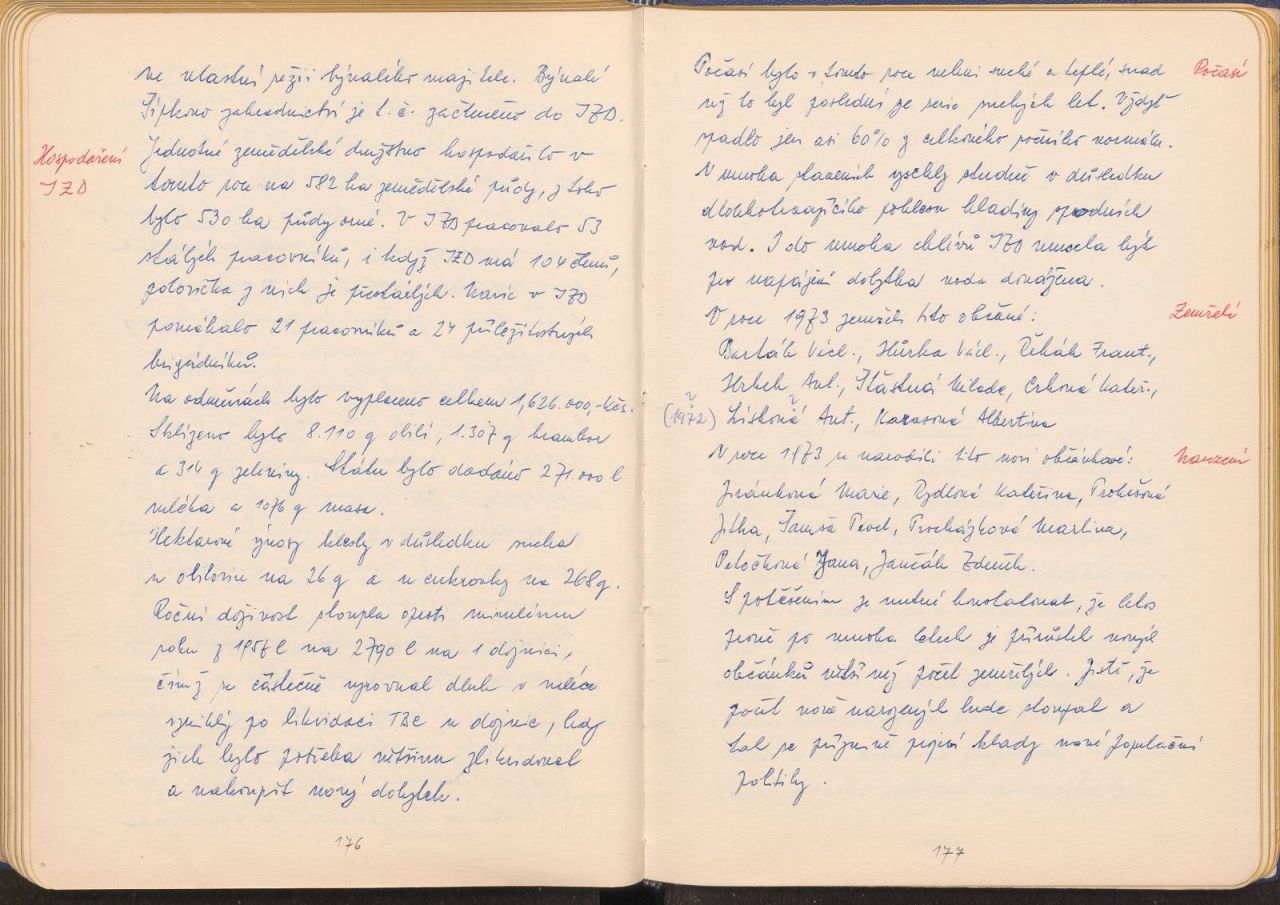 ve vlastní režii bývalého majitele. Bývalé
Šípkovo zahradnictví je t. č. začleněno do JZD.
Hospodaření
JZD
Jednotné zemědělské družstvo hospodařilo v
tomto roce na 582 ha zemědělské půdy, z toho
bylo 530 ha půdy orné. V JZD pracovalo 53
stálých pracovníků, i když JZD má 104 členů,
polovička z nich je přestárlých. Navíc v JZD
pomáhalo 21 pracovníků a 24 příležitostných
brigádníků.
Na odměnách bylo vyplaceno celkem 1,626.000,-Kčs.
Sklizeno bylo 8.110 q obilí, 1.307 q brambor
a 314 q zeleniny. Státu bylo dodáno 271.000 l
mléka a 1076 q masa.
Hektarové výnosy klesly v důsledku sucha
u obilovin na 26 q a u cukrovky na 268 q.
Roční dojivost stoupla oproti minulému
roku z 1957 l na 2790 l na 1 dojnici,
čímž se částečně vyrovnal dluh v mléce
vzniklý po likvidaci TBC u dojnic, kdy
jich bylo potřeba většinu zlikvidovat
a nakoupit nový dobytek.
176
Počasí
Počasí bylo v tomto roce velmi suché a teplé, snad
již to byl poslední ze serie suchých let. Vždyť
spadlo jen asi 60% z celkového ročního normálu.
V mnoha staveních vyschly studně v důsledku
dlouhotrvajícího poklesu hladiny spodních
vod. I do mnoha chlívů JZD musela být
pro napájení dobytka voda dovážena.
Zemřelí
V roce 1973 zemřeli tito občané:
Barták Václ., Hůrka Václ., Řehák Frant.,
Hrbek Ant., Šťastná Milada, Crhová Kateř.,
(1972) Lišková Ant., Karasová Albertina
Narození
V roce 1973 se narodili tito noví občánkové:
Jiránková Marie, Rydlová Kateřina, Prokešová
Jitka, Šamša Pavel, Procházková Martina,
Petočková Jana, Jančák Zdeněk.
S potěšením je nutné konstatovat, že letos
prvně po mnoha letech je přírůstek nových
občánků větší než počet zemřelých. Jistě, že
počet nově narozených bude stoupat a
tak se příznivě projeví klady nové populační
politiky.
177